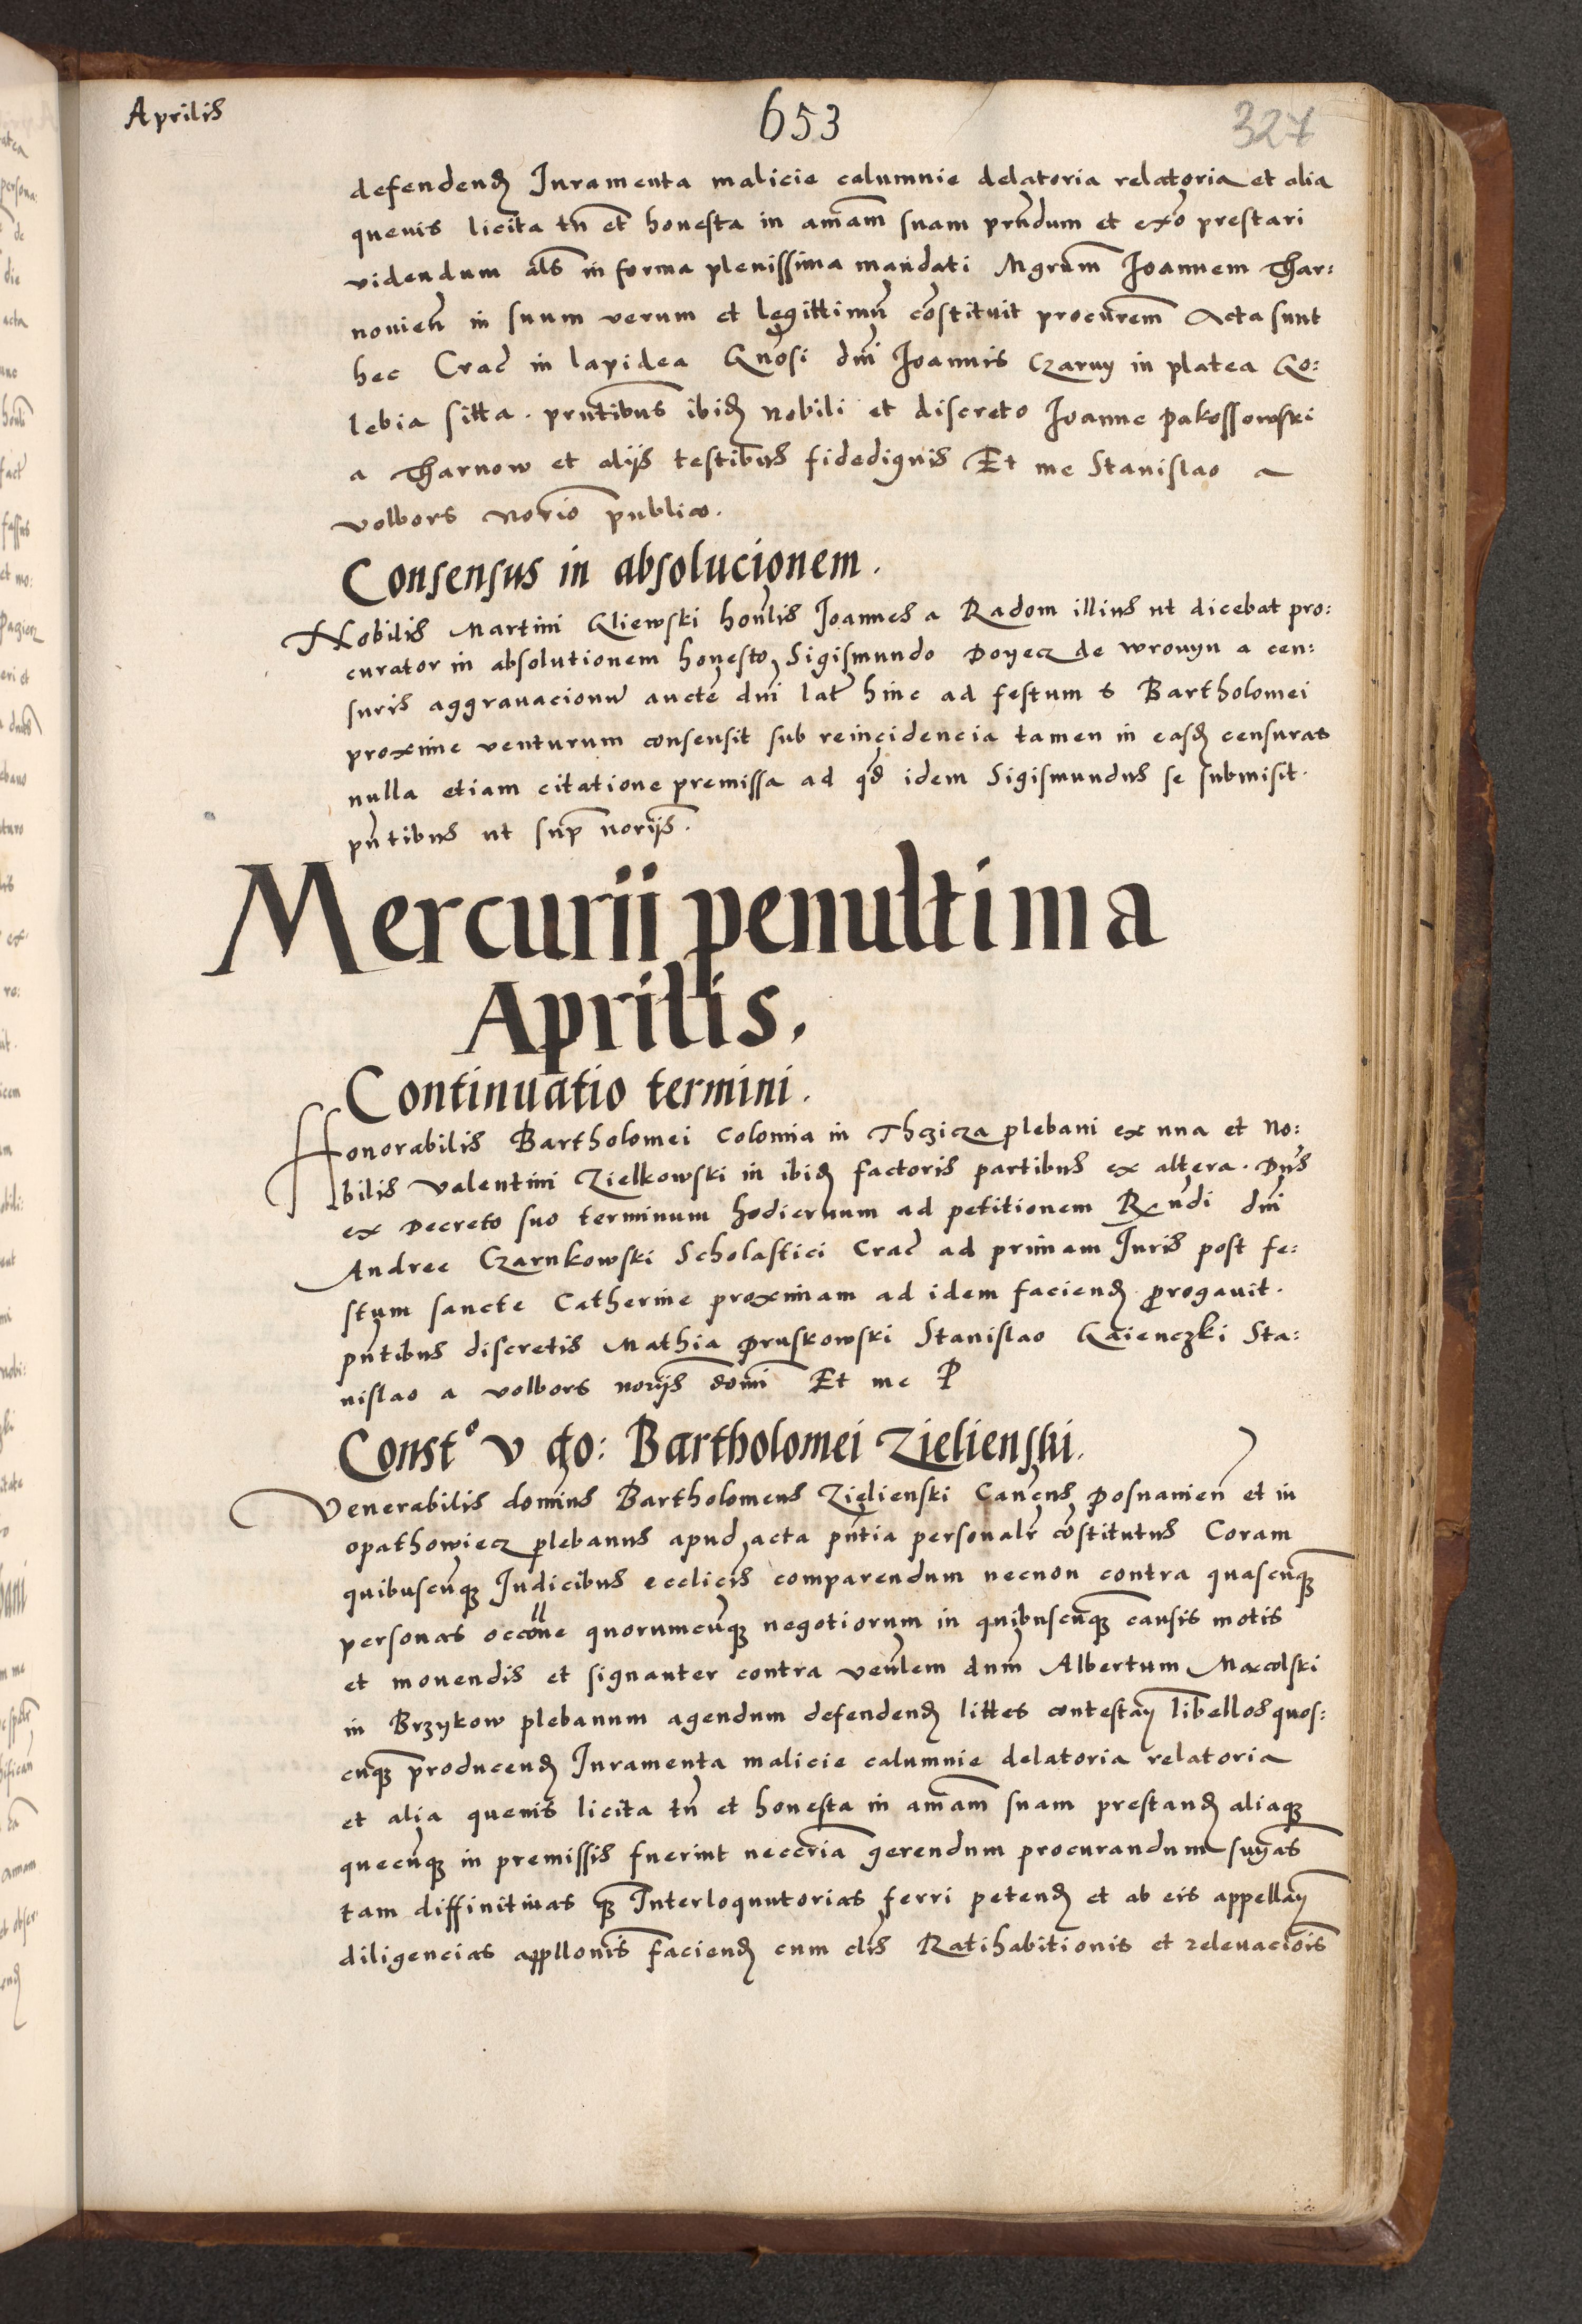 Aprilis
653
327
defendenđ Iuramenta malicie calumnie delatoria relatoria et alia
quevis licita tñ et honesta in amam̃ suam prñdum et exõ prestari
videndum als̃ in forma plenissima mandati Mgrum̃ Ioannem Thar:
novieñ in suum verum et legittimũ cõstituit procurem̃ Acta sunt
hec Crac̃ in lapidea Gñosi dñi Ioannis Czarny in platea Go:
lebia sitta. prñtibus ibiđ Nobili et discreto Ioanne Pakossowski
a Tharnow et alijs testibus fidedignis Et me Stanislao a
volbors Norio̅ publico.
Consensus in absolucionem.
Nobilis Martini Gliewski hoñlis Ioannes a Radom illius ut dicebat pro:
curator in absolutionem honesto Sigismundo Doyecz de wrovyn a cen:
suris aggravacionũ aucte dñi lat̃ hinc ad festum s Bartholomei
proxime venturum consensit sub reincidencia tamen in easđ censuras
nulla etiam citatione premissa ad qđ idem Sigismundus se submisit.
pñtibus ut sup̃ norijs̃.
Mercurii penultima
Aprilis.
Continuatio termini.
Honorabilis Bartholomei Colonia in Thczicza plebani ex una et No:
bilis Valentini Zielkowski in ibiđ factoris partibus ex altera. Dñs
ex Decreto suo terminum hodiernum ad petitionem Rñdi dñi
Andree Czarnkowski Scholastici Crac̃ ad primam Iuris post fe:
stum sancte Catherine proximam ad idem faciendđ prorogavit.
pñtibus discretis Mathia Pruskowski Stanislao Gaienczki Sta:
nislao a volbors norijs̃ domi̅ Et me P
Constº v do: Bartholomei Zielienski.
Venerabilis dominus Bartholomeus Zielienski Cañcus Posnanieñ et in
opathowiecz plebanus apud acta pñtia personalr̃ cõstitutus Coram
quibuscũq; Iudicibus ecclicis̃ comparendum necnon contra quascũq;
personas occõne quorumcũq; negotiorum in quibuscũq; causis motis
et movendis et signanter contra veñlem dnm̃ Albertum Macolski
in Brzykow plebanum agendum defendenđ littes contestañ libellos quos:
cuq̃; producenđ Iuramenta malicie calumnie delatoria relatoria
et alia quevis licita tñ et honesta in amam̃ suam prestanđ aliaq;
quecũq; in premissis fuerint neccria̅ gerendum procurandum suyas̃
tam diffinitivas q̃; Interloqutorias ferri petenđ et ab eis appellañ
diligencias appllonis̃ facienđ cum clis̃ Ratihabitionis et relevaciois̃